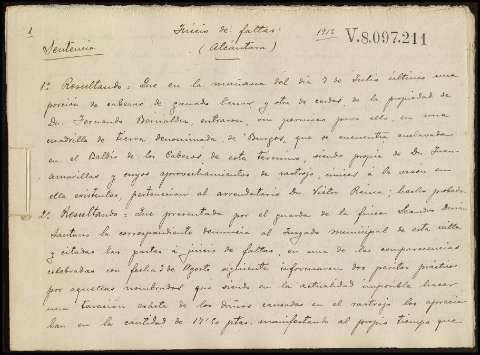 1
Juicio de faltas 1912 V.8.097.211
Sentencia (Alcántara)
1º Resultando: Que en la mañana del día 7 de Julio último una
porción de cabezas de ganado lanar y otra de cerdos, de la propiedad
de Dn. Fernando Bernáldez, entraron, sin permiso para ello, en una
cuadrilla de tierra denominada de Burgos, que se encuentra enclavada
en el Baldío de las Cabezas, de este término, siendo propia de Dn. Juan
Amarillas y cuyos aprovechamientos de rastrojo, únicos á la sazón en
ella existentes, pertenecían al arrendatario Dn. Victor Reina; hecho probado
2º Resultando: Que presentada por el guarda de la finca Leandro
Santano la correspondiente denuncia al Juzgado municipal de esta villa
y citadas las partes á juicio de faltas, en una de las comparecencias
celebradas con fecha de Agosto siguiente informaron dos peritos prácticos
por aquellas nombrados que siendo en la actualidad imposible hacer
una tasación exacta de los daños causados en el rastrojo los aprecia
ban en la cantidad de 17'50 ptas. manifestando al propio tiempo que